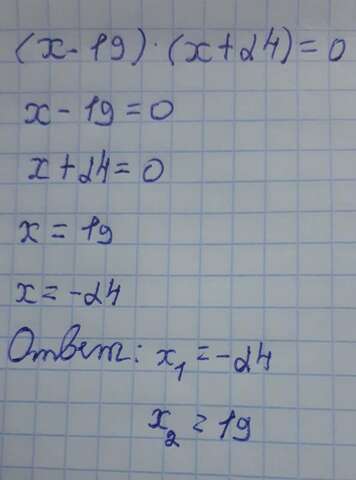 (x-19)·(x+24)=0
x-19=0
x+24=0
x=19
x=-24
Ответ: x₁=-24
x₂=19